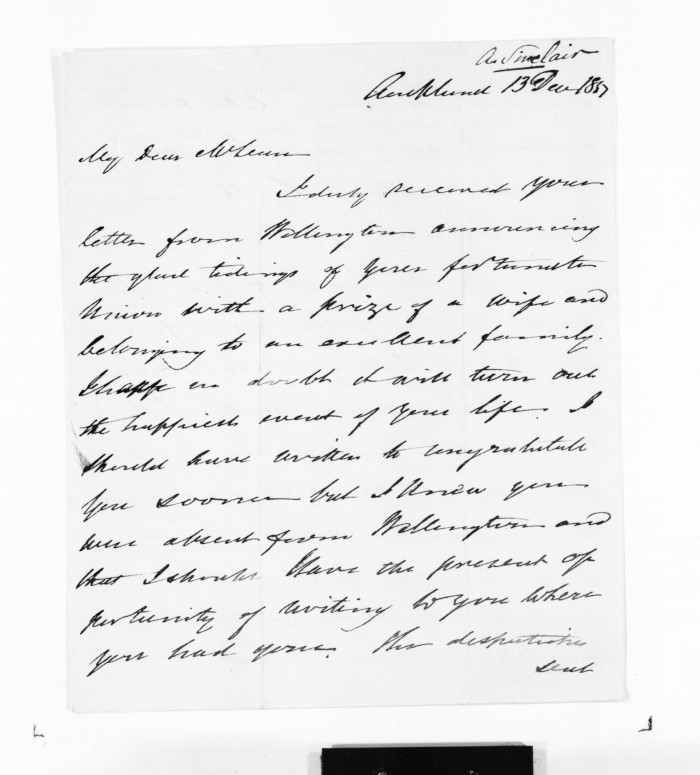 A. Sinclair
Auckland 13 Dec 1851
My Dear McLean
I duly received your
letter from Wellington announcing
the glad tidings of your fortunate
Union with a prize of a wife and
belonging to an excellent family.
I have no doubt it will turn out
the happiest event of your life. I
should have written to congratulate
you sooner but I knew you
were absent from Wellington and
that I should have the present op
portunity of writing to you where
you had gone. The despatches
sent